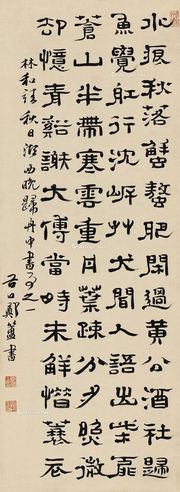 水痕秋落蟹螯肥閑過黃公酒社歸
魚覺舡行沈岸艸犬聞人語出柴扉
蒼山半帶寒雲重丹葉疎分夕照微
却憶青谿謝大傅當時未解惜蓑衣
林和靖秋日湖西晚歸舟中書事之一
谷口鄭簠書